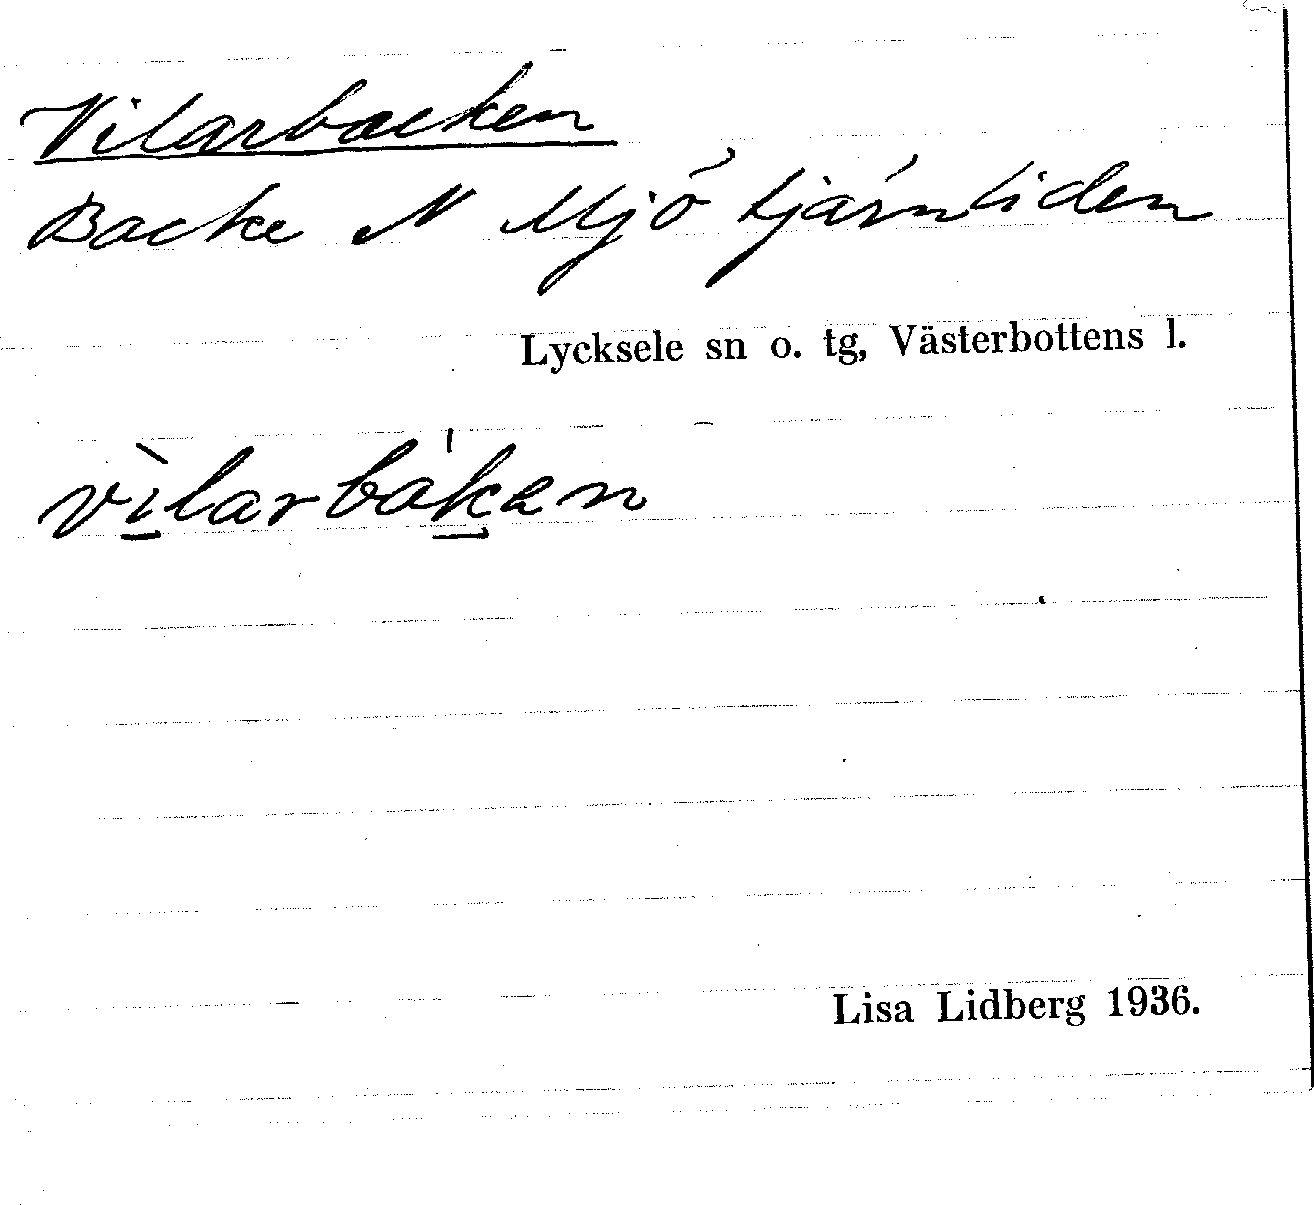 Vilarbacken
Backe N Mjötjärnliden
Lycksele sn o. tg, Västerbottens l.
vìlarbákan
Lisa Lidberg 1936.